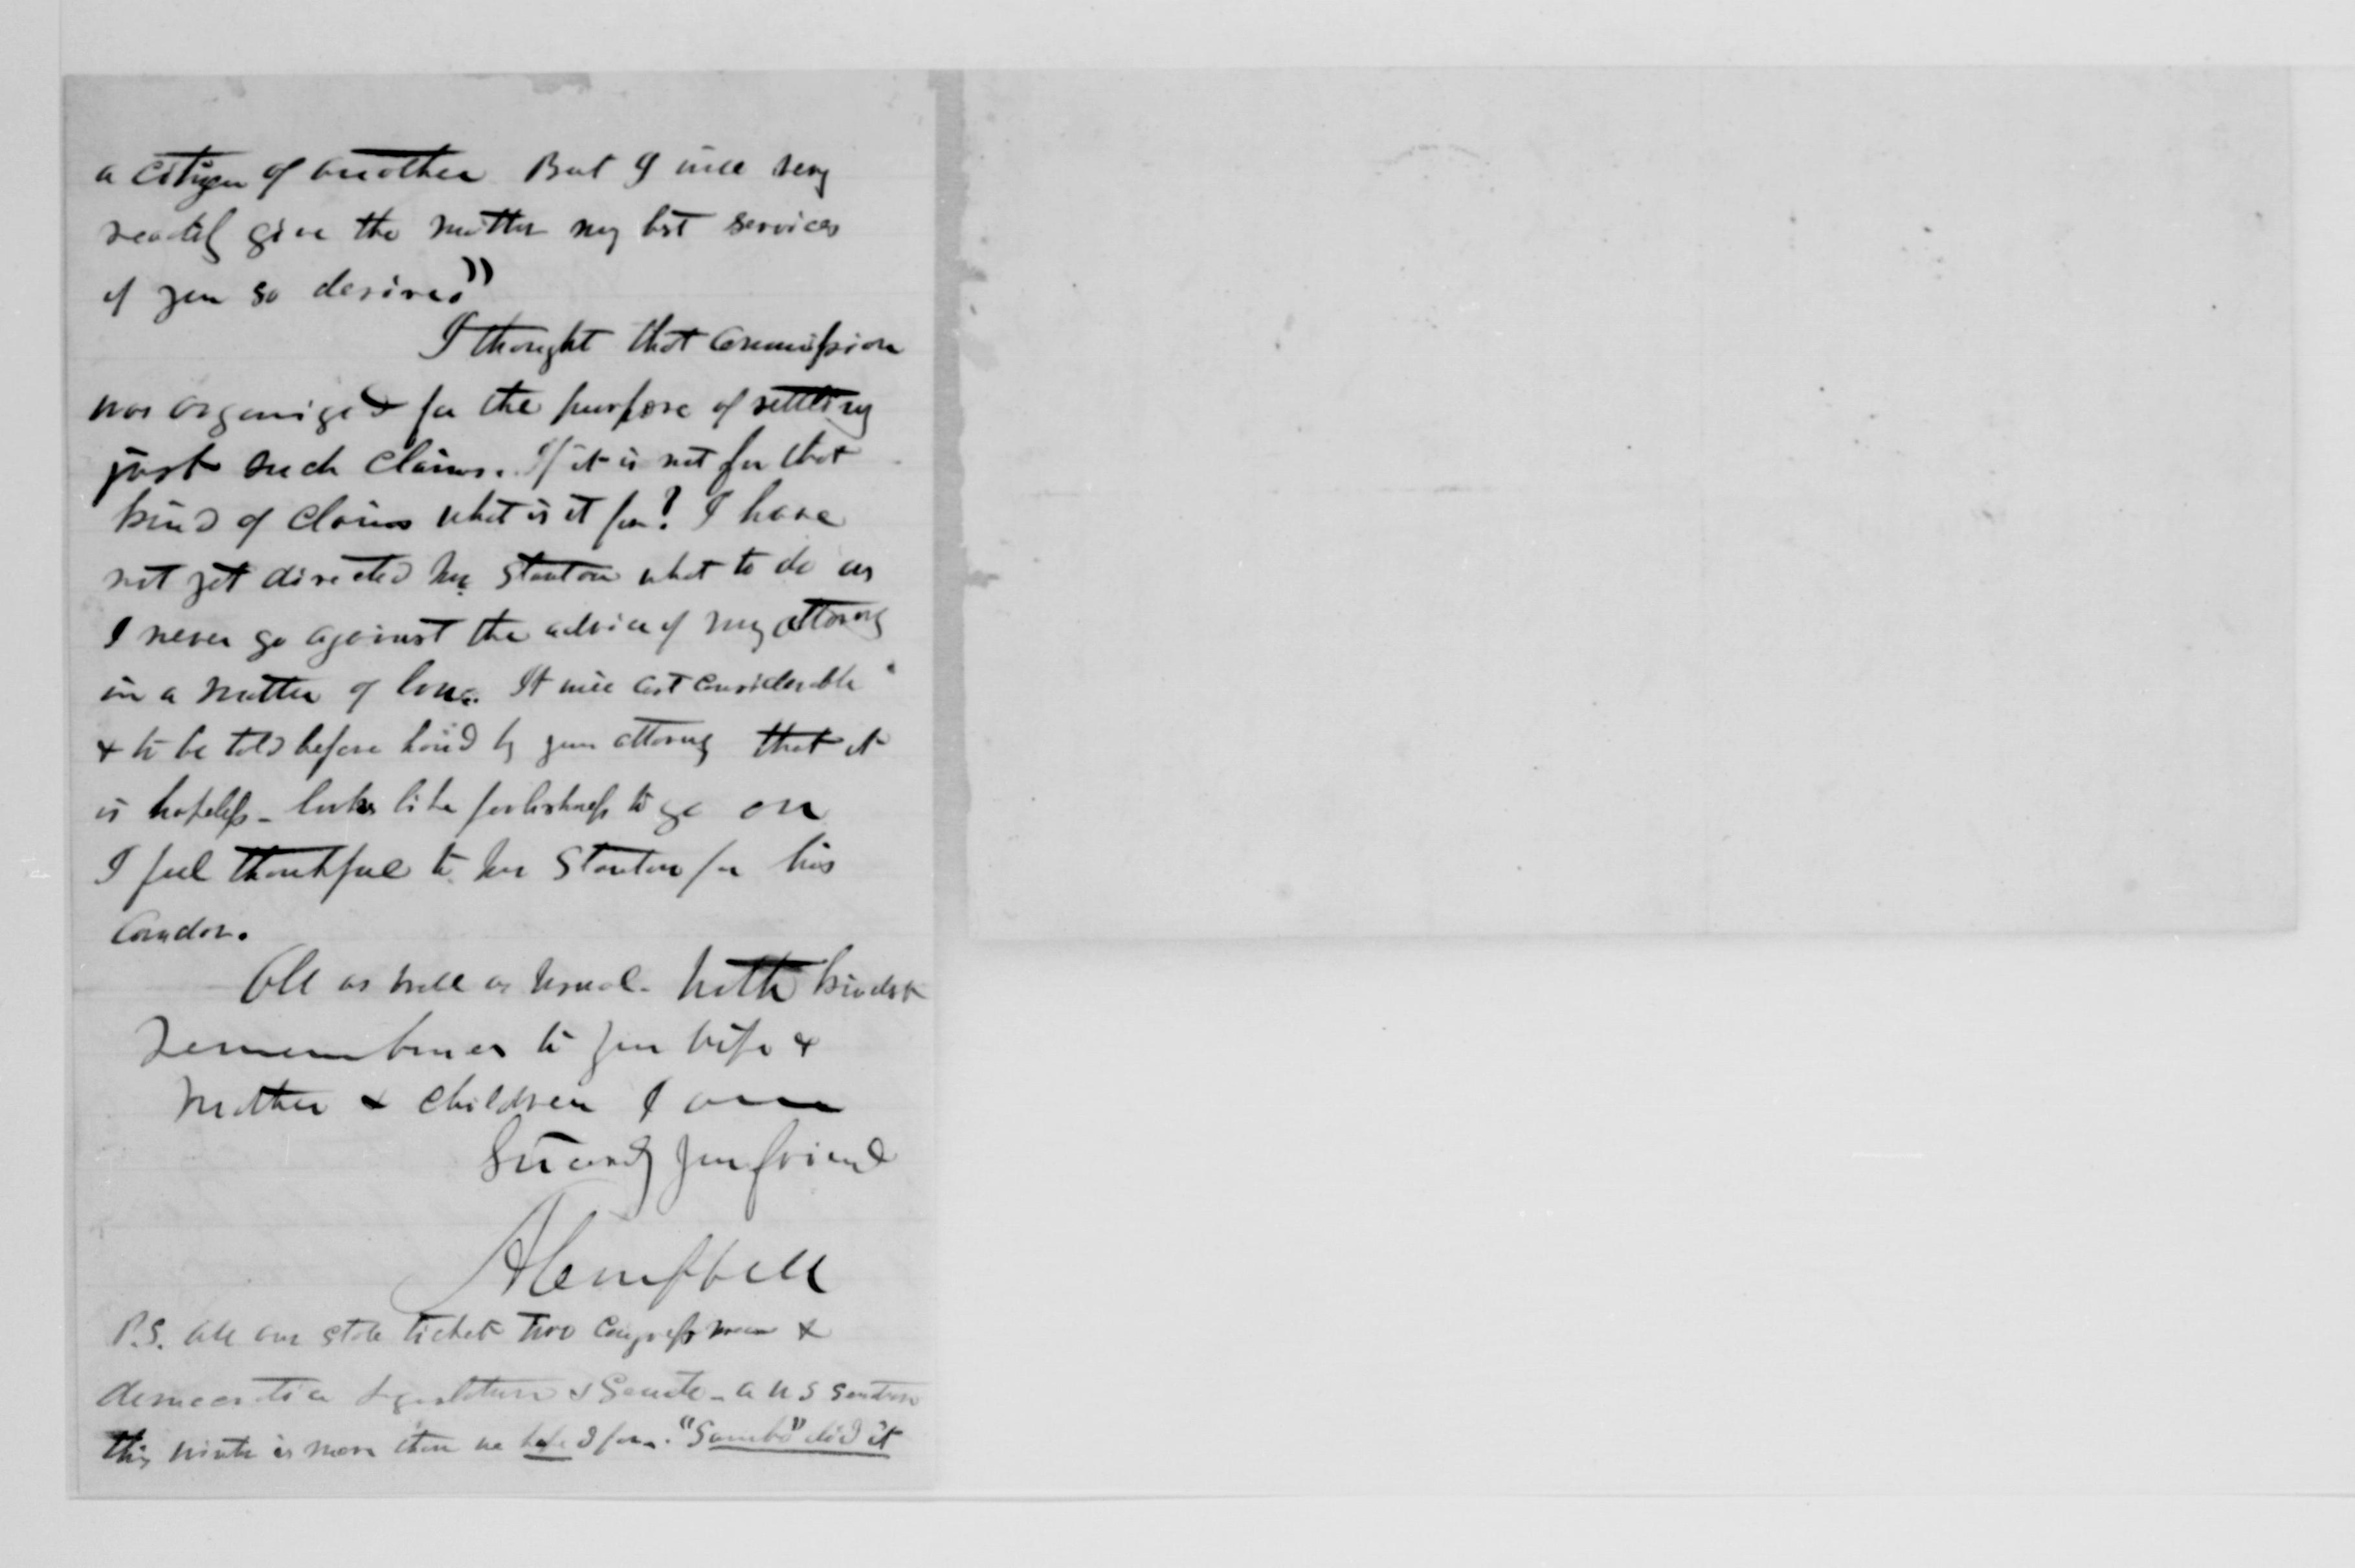 a citizen of another But I will very
readily give the matter my best services
if you so desire."
I thought that commission
was organized for the purpose of settling
just such claims. If it is not for that
kind of claims what is it for? I have
not yet directed Mr Stanton what to do as
I never go against the advice of my attorney
in a matter of law. It will cost considerable
& to be told before hand by your attorney that it
is hopeless - looks like foolishness to go on
I feel thankful to Mr Stanton for his
candor.
All as well as usual. With kindest
remembrances to your wife &
mother & children I am
Sincerely your friend
A Campbell
P.S. All our state ticket two Congressmen &
democratic Legislature & Senate - a U S Senator
this winter is more than we hoped for. "Sambo" did it